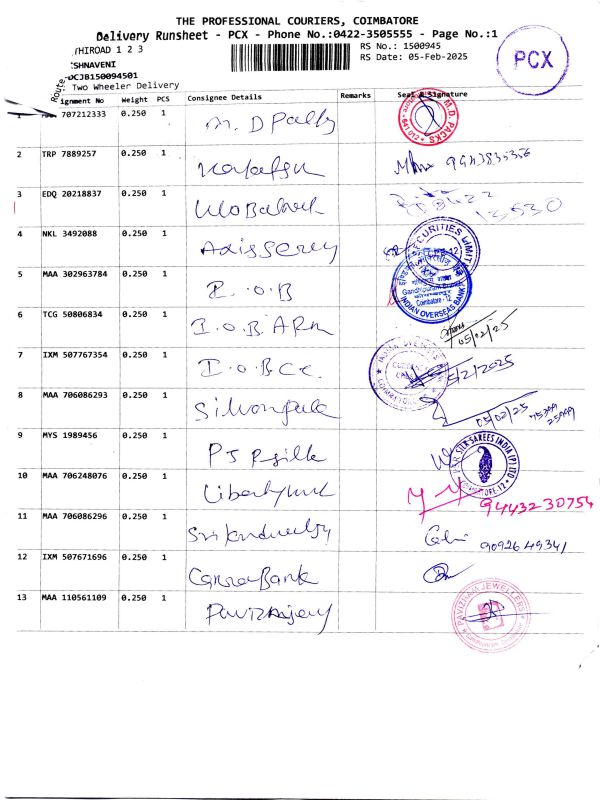 THE PROFESSIONAL COURIERS, COIMBATORE
Delivery Runsheet - PCX - Phone No.:0422-3505555 - Page No.:1
THIROAD 1 2 3
RS No.: 1500945
PCX
SHNAVENI
RS Date: 05-Feb-2025
DCJB150094501
Route
Two Wheeler Delivery
ignment No Weight PCS Consignee Details Remarks Seal & Signature
707212333 0.250 1 M. D M.D. PACKS
2 TRP 7889257 0.250 1
3 EDQ 20218837 0.250 1
4 NKL 3492088 0.250 1 Axis
5 MAA 302963784 0.250 1 I.O.B INDIAN OVERSEAS BANK Coimbatore - 12
6 TCG 50806834 0.250 1 I.O.B ARM 05/02/25
7 IXM 507767354 0.250 1 I.O.B CC 5/2/2025
8 MAA 706086293 0.250 1 05/02/25
9 MYS 1989456 0.250 1 PSR Silk PSR SILK SAREES INDIA (P) LTD
10 MAA 706248076 0.250 1 Liberty 9443230754
11 MAA 706086296 0.250 1 9092649341
12 IXM 507671696 0.250 1 Canara Bank
13 MAA 110561109 0.250 1 PAVIZHAM JEWELLERS